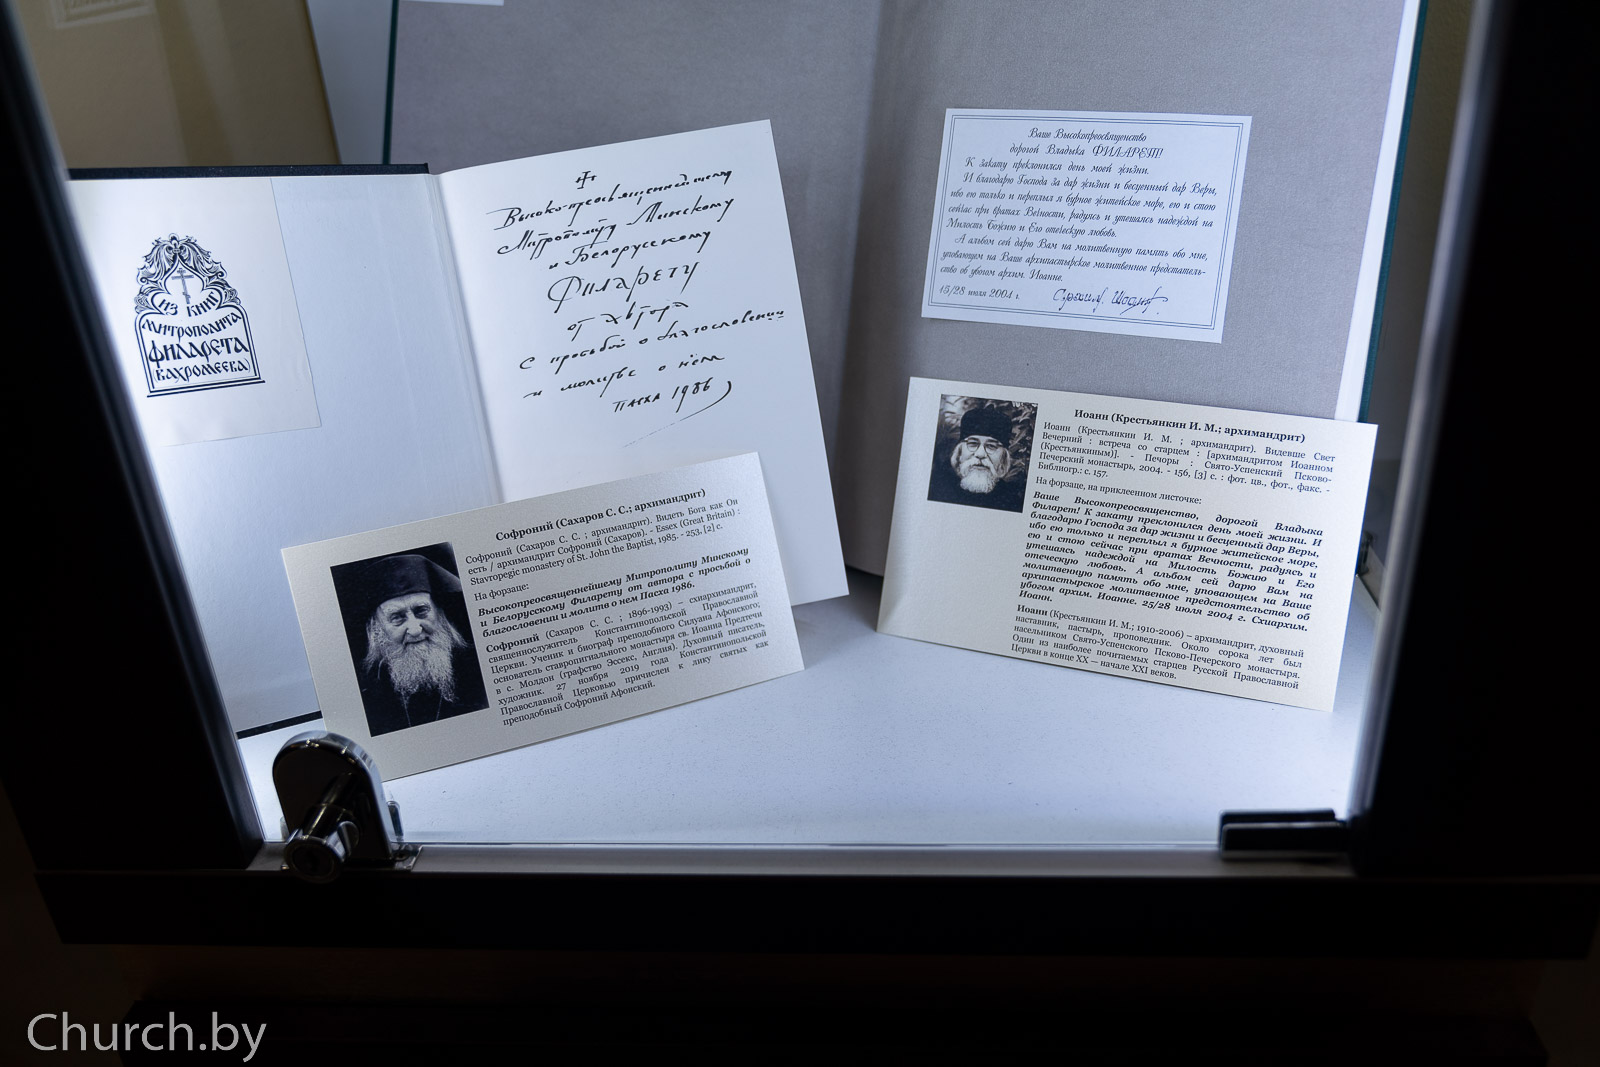 ИЗ КНИГ
МИТРОПОЛИТА
ФИЛАРЕТА
(ВАХРОМЕЕВА)
Высокопреосвященнейшему
Митрополиту Минскому
и Белорусскому
Филарету
от автора
с просьбой о благословении
и молитве о нём
Пасха 1986
Ваше Высокопреосвященство
дорогой Владыка ФИЛАРЕТ!
К закату преклонился день моей жизни.
И благодарю Господа за дар жизни и бесценный дар Веры,
ибо ею только и переплыл я бурное житейское море, ею и стою
сейчас при вратах Вечности, радуясь и утешаясь надеждой на
Милость Божию и Его отеческую любовь.
А альбом сей дарю Вам на молитвенную память обо мне,
уповающем на Ваше архипастырское молитвенное предстатель-
ство об убогом архим. Иоанне.
15/28 июля 2004 г.
Софроний (Сахаров С. С.; архимандрит)
Софроний (Сахаров С. С. ; архимандрит). Видеть Бога как Он
есть / архимандрит Софроний (Сахаров). - Essex (Great Britain) :
Stavropegic monastery of St. John the Baptist, 1985. - 253, [2] с.
На форзаце:
Высокопреосвященнейшему Митрополиту Минскому
и Белорусскому Филарету от автора с просьбой о
благословении и молитв о нем Пасха 1986.
Софроний (Сахаров С. С. ; 1896-1993) – схиархимандрит,
священнослужитель Константинопольской Православной
Церкви. Ученик и биограф преподобного Силуана Афонского;
основатель ставропигиального монастыря св. Иоанна Предтечи
в с. Молдон (графство Эссекс, Англия). Духовный писатель,
художник. 27 ноября 2019 года Константинопольской
Православной Церковью причислен к лику святых как
преподобный Софроний Афонский.
Иоанн (Крестьянкин И. М.; архимандрит)
Иоанн (Крестьянкин И. М. ; архимандрит). Видевше Свет
Вечерний : встреча со старцем : [архимандритом Иоанном
(Крестьянкиным)]. - Печоры : Свято-Успенский Псково-
Печерский монастырь, 2004. - 156, [3] с. : фот. цв., фот., факс. -
Библиогр.: с. 157.
На форзаце, на приклеенном листочке:
Ваше Высокопреосвященство, дорогой Владыка
Филарет! К закату преклонился день моей жизни. И
благодарю Господа за дар жизни и бесценный дар Веры,
ибо ею только и переплыл я бурное житейское море,
ею и стою сейчас при вратах Вечности, радуясь и
утешаясь надеждой на Милость Божию и Его
отеческую любовь. А альбом сей дарю Вам на
молитвенную память обо мне, уповающем на Ваше
архипастырское молитвенное предстоятельство об
убогом архим. Иоанне. 25/28 июля 2004 г. Схиархим.
Иоанн.
Иоанн (Крестьянкин И. М.; 1910-2006) – архимандрит, духовный
наставник, пастырь, проповедник. Около сорока лет был
насельником Свято-Успенского Псково-Печерского монастыря.
Один из наиболее почитаемых старцев Русской Православной
Церкви в конце XX — начале XXI веков.
Church.by